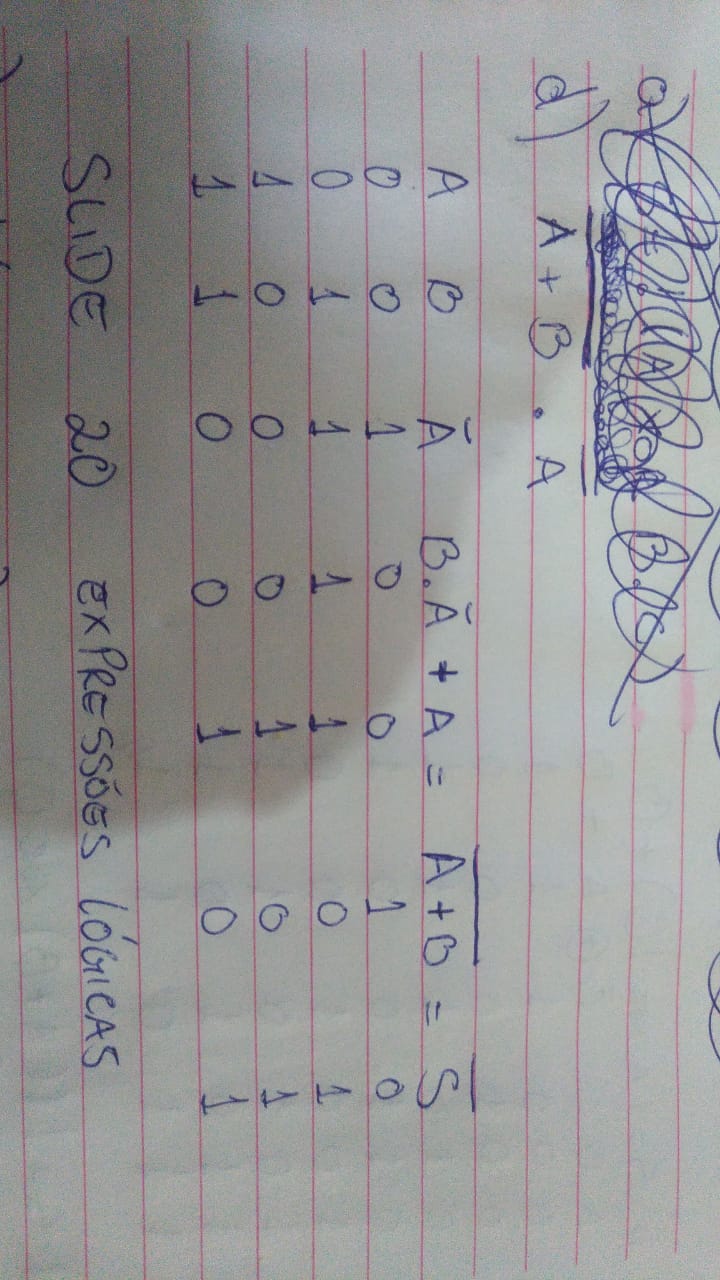 d) A̅+̅B̅ . A̅
A B Ā B.Ā + A = A̅+̅B̅ = S̅
0 0 1 0 0 1 0
0 1 1 1 1 0 1
1 0 0 0 1 0 1
1 1 0 0 1 0 1
SLIDE 20 EXPRESSÕES LÓGICAS